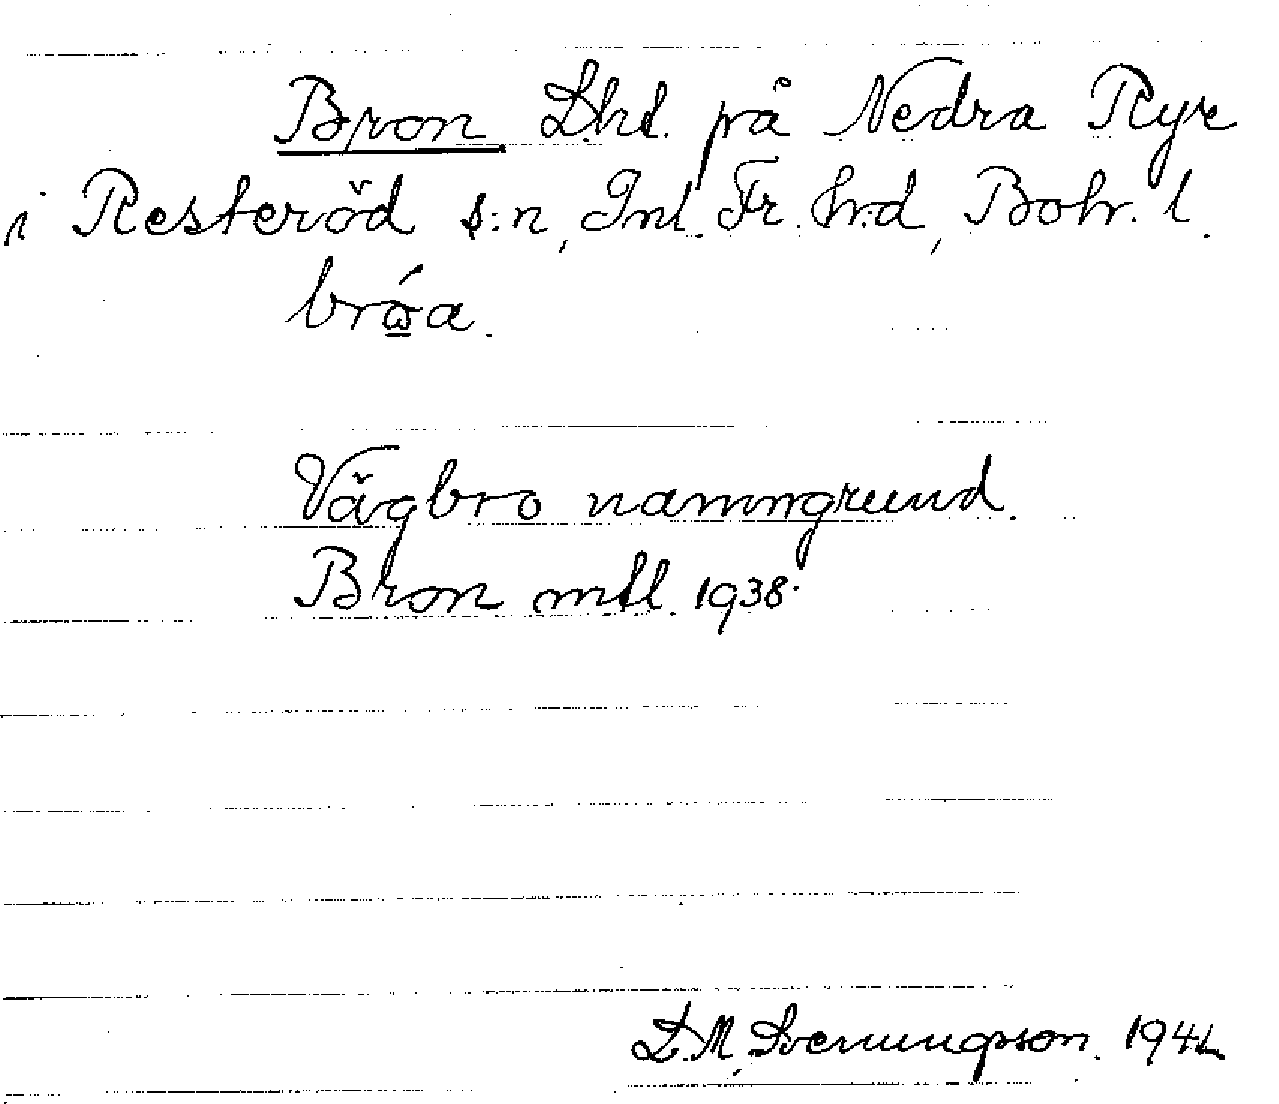 Bron Lht. på Nedra Ryr
i Resteröd s:n, Inl. Fr. hrd, Boh. l.
brώ̲a.
Vägbro namngrund.
Bron mtl. 1938.
L.M. Svenungsson. 1942